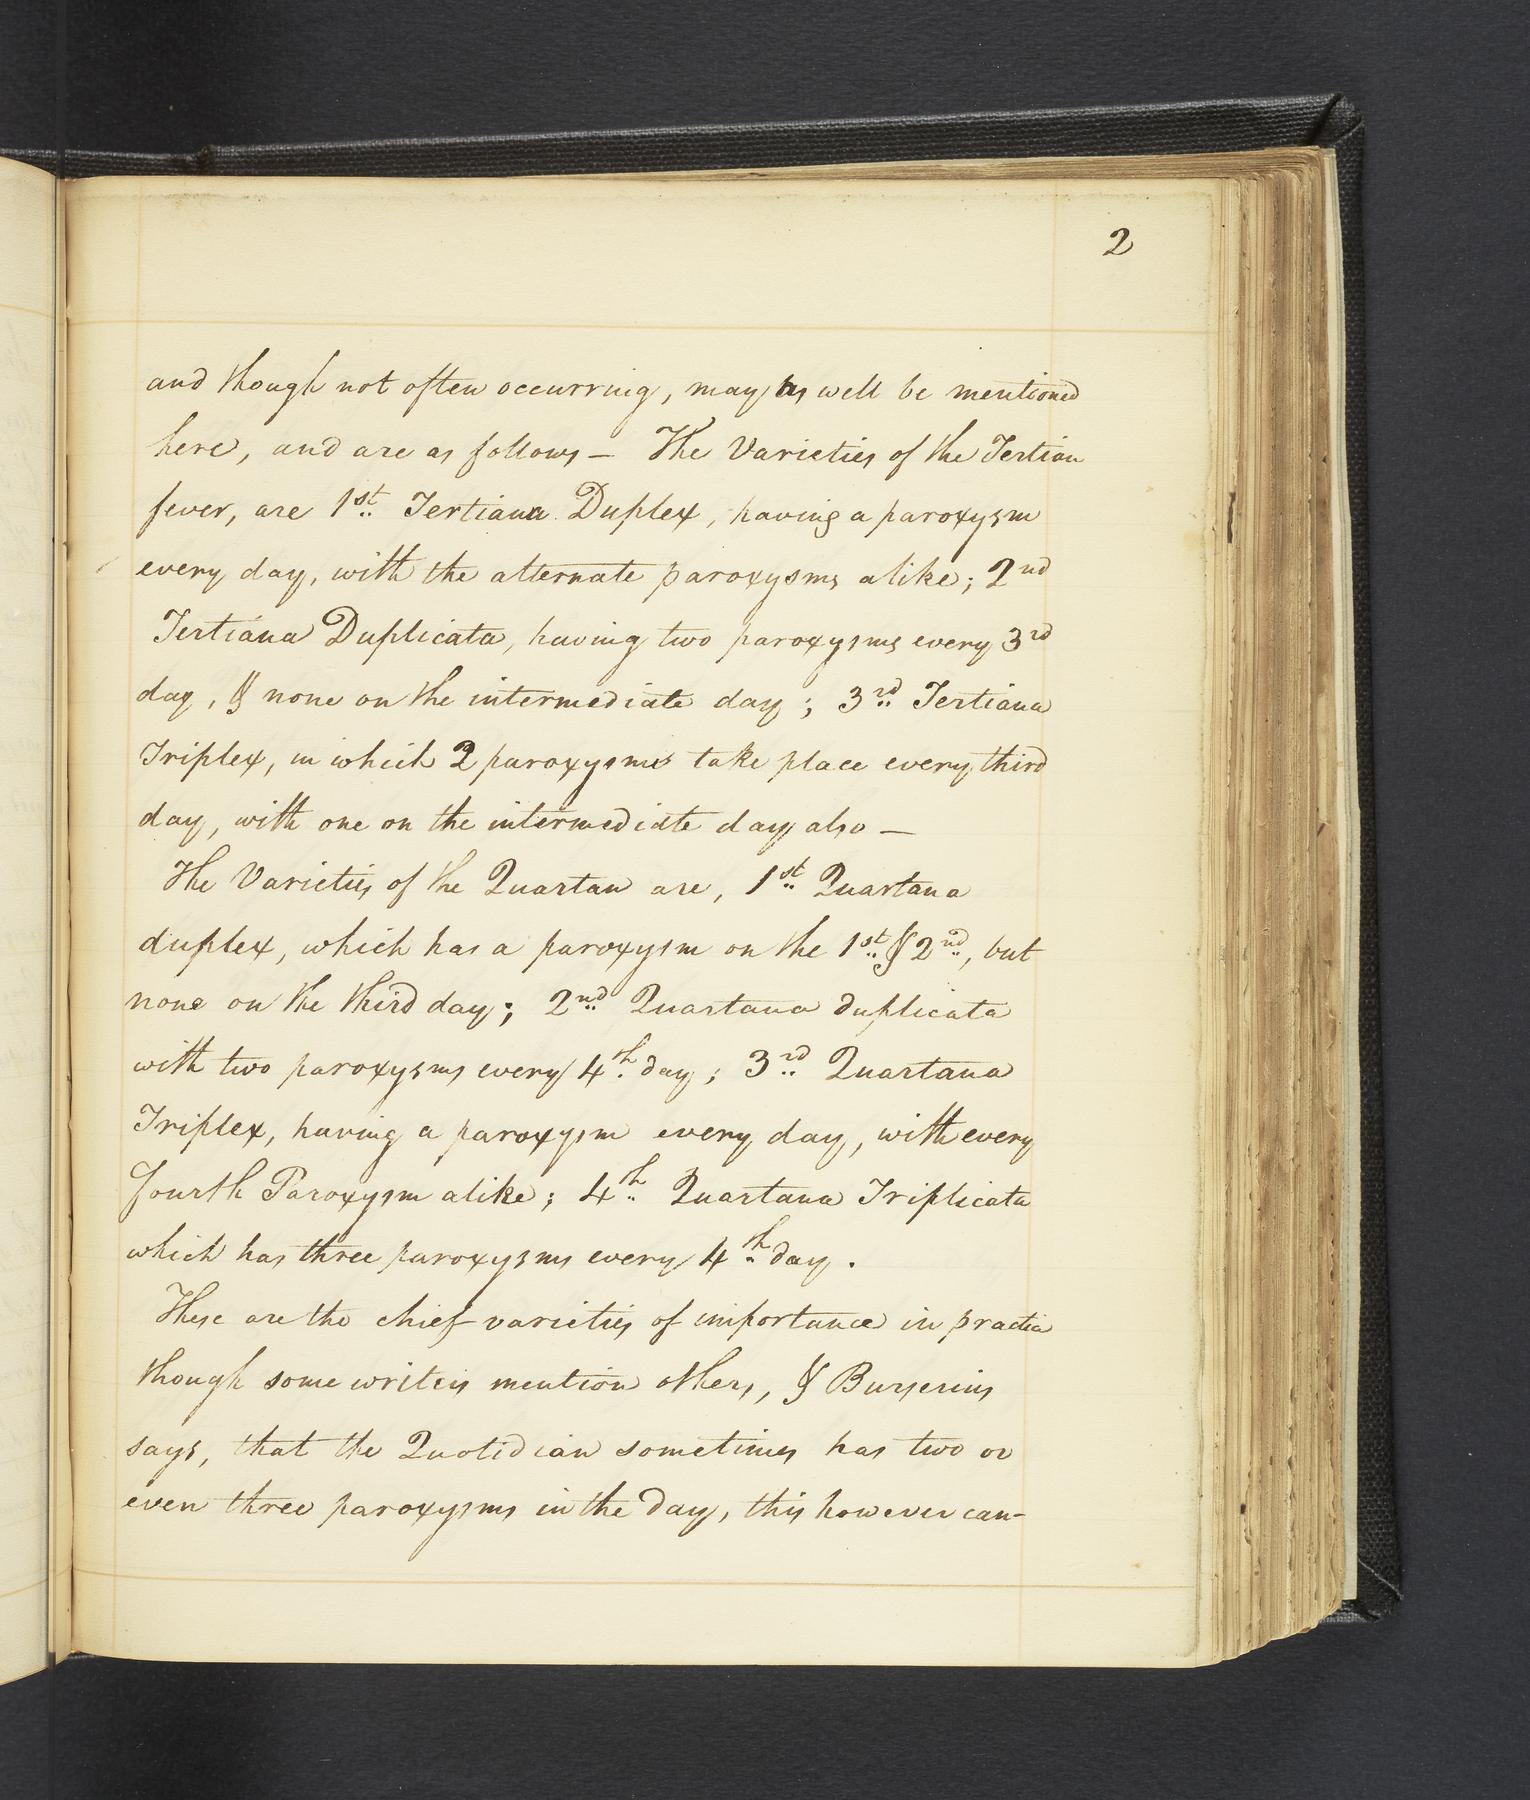 2
and though not often occurring, may as well be mentioned
here, and are as follows — The Varieties of the Tertian
fever, are 1st Tertiana Duplex, having a paroxysm
every day, with the alternate paroxysms alike; 2nd
Tertiana Duplicata, having two paroxysms every 3rd
day, & none on the intermediate day; 3rd Tertiana
Triplex, in which 2 paroxysms take place every third
day, with one on the intermediate day also —
The Varieties of the Quartan are, 1st Quartana
duplex, which has a paroxysm on the 1st & 2nd, but
none on the third day; 2nd Quartana duplicata
with two paroxysms every 4th day; 3rd Quartana
Triplex, having a paroxysm every day, with every
fourth Paroxysm alike; 4th Quartana Triplicata
which has three paroxysms every 4th day.
These are the chief varieties of importance in practice
though some writers mention others, & Burserius
says, that the Quotidian sometimes has two or
even three paroxysms in the day, this however can-